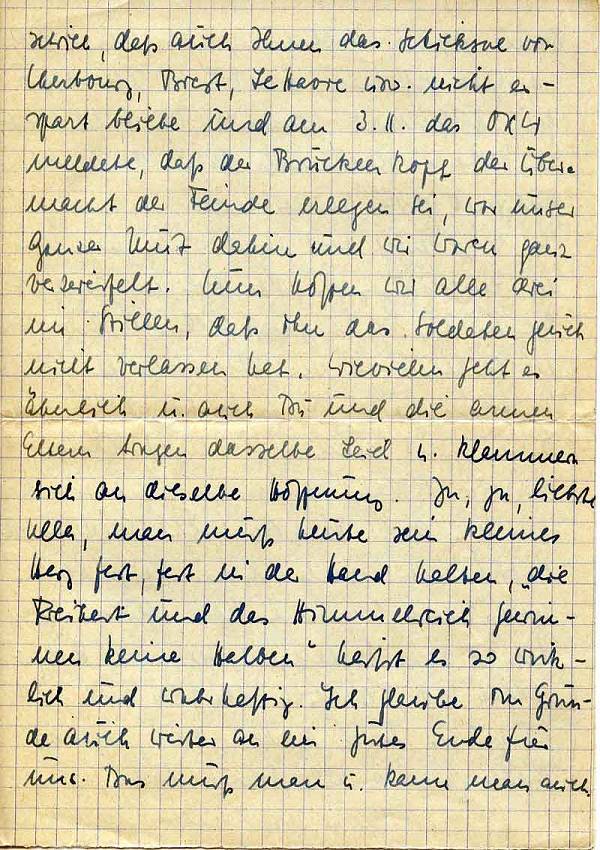 schien, daß auch Ihnen das Schicksal von
Cherbourg, Brest, Le Havre usw. nicht er-
spart bliebe und am 3.11. das OKW
meldete, daß der Brückenkopf der Über-
macht der Feinde erlegen sei, war unser
ganzer Mut dahin und wir waren ganz
verzweifelt. Nun hoffen wir alle drei
im Stillen, daß ihn das Soldatenglück
nicht verlassen hat. Wievielen geht es
ähnlich u. auch Du und die armen
Eltern tragen dasselbe Leid u. klammern
sich an dieselbe Hoffnung. Ja, ja, liebste
man muß heute sein kleines
Herz fest, fest in der Hand halten, „die
Freiheit und das Himmelreich gewin-
nen keine Halben" heißt es so wirk-
lich und wahrhaftig. Ich glaube im Grun-
de auch weiter an ein gutes Ende für
uns. Das muß man u. kann man auch